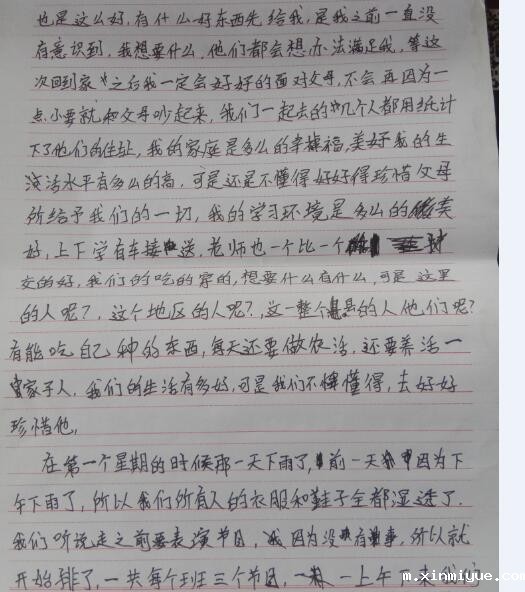 也是这么好,有什么好东西先给我,是我之前一直没
有意识到,我想要什么,他们都会想办法满足我,等这
次回到家,之后我一定会好好的面对父母,不会再因为一
点小事就和父母吵起来,我们一起去的几个人都用纸计
下了他们的住址,我的家庭是多么的幸福,美好我的生
活水平有多么的高,可是还是不懂得好好得珍惜父母
所给予我们的一切,我的学习环境是多么的美
好,上下学有车接送,老师也一个比一个
交的好,我们的吃的穿的,想要什么有什么,可是这里
的人呢?,这个地区的人呢?,这一整个县的人他们呢?
有能吃自己种的东西,每天还要做农活,还要养活一
家子人,我们的生活有多好,可是我们不懂得,去好好
珍惜他,
在第一个星期的时候那一天下雨了,前一天因为下
午下雨了,所以我们所有人的衣服和鞋子全都湿透了.
我们听说走之前要表演节目,我因为没有事,所以就
开始排了,一共每个班三个节目,一上午下来我们
m.xinmiyue.com